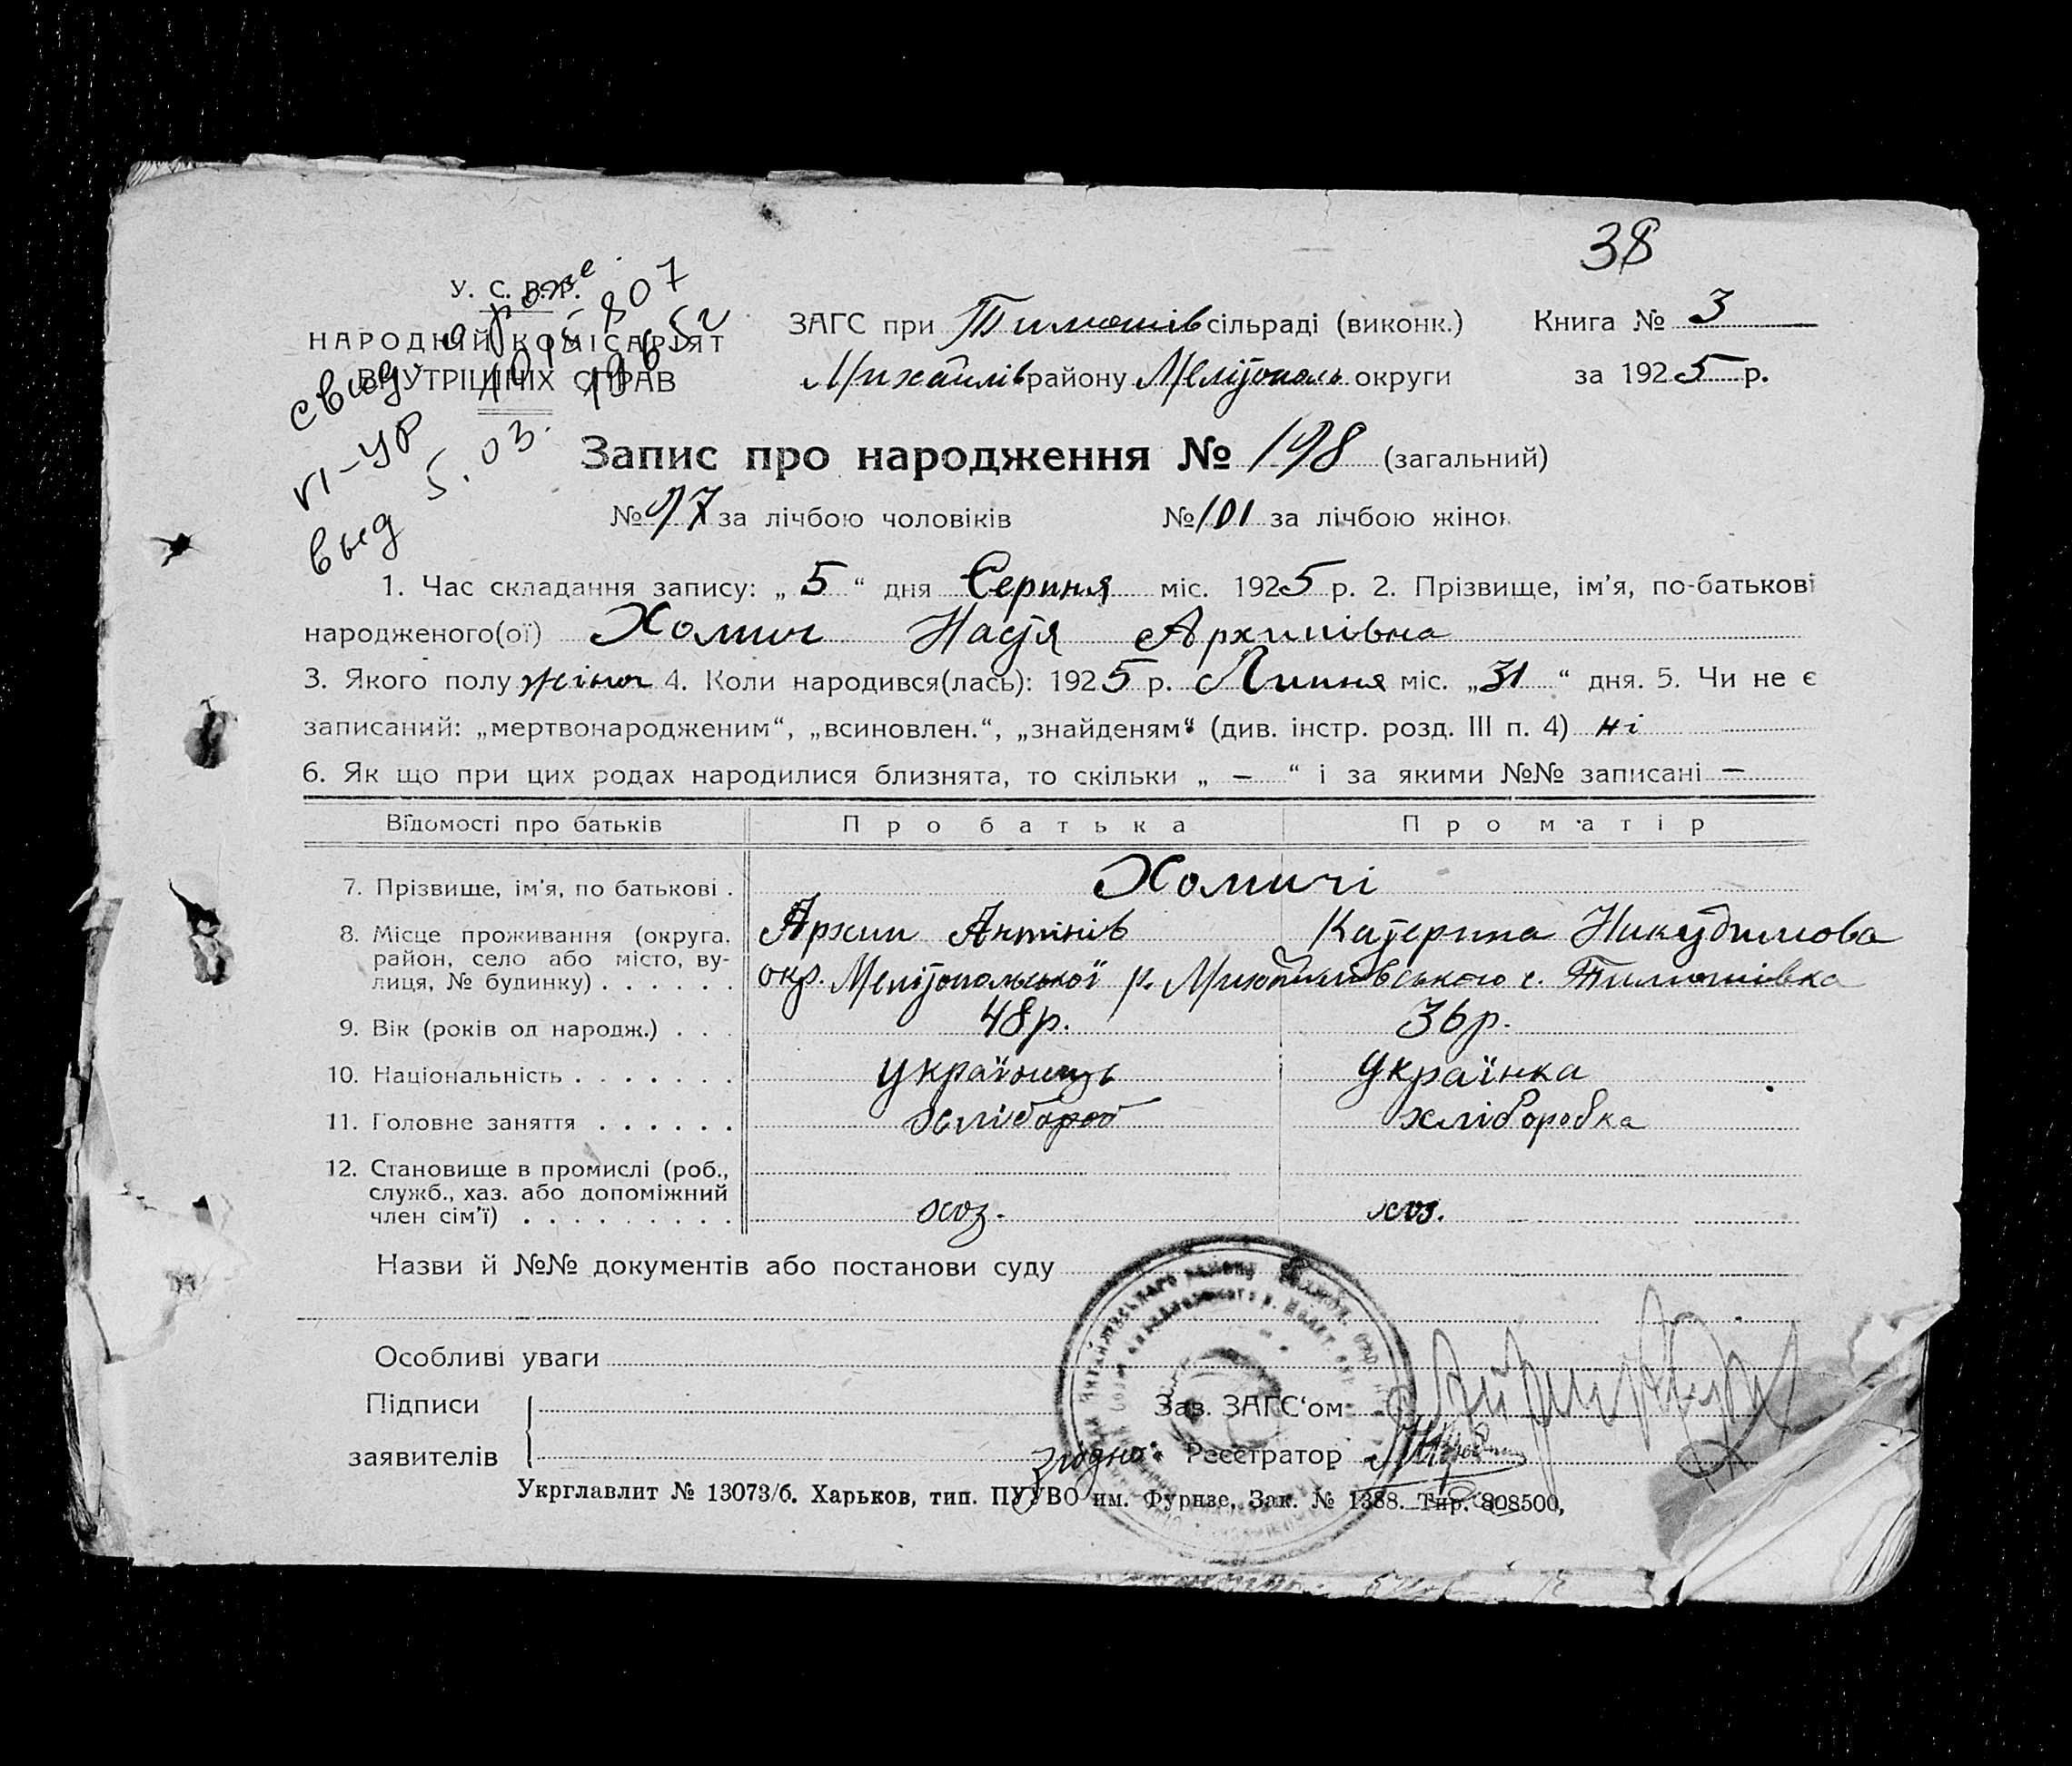 38
У. С. Р. Р.
НАРОДНІЙ КОМІСАРІЯТ
ВНУТРІШНІХ СПРАВ
свид. о рожд.
807
1965 г
VI-УР
выд 5.03.
ЗАГС при Тимошів сільраді (виконк.) Книга № 3
Михайлів району Мелітополь округи за 1925 р.
Запис про народження № 198 (загальний)
№ 97 за лічбою чоловіків № 101 за лічбою жінок
1. Час складання запису: „ 5 “ дня Серпня міс. 1925 р. 2. Прізвище, ім'я, по-батькові
народженого(ої) Хомич Настя Архипівна
3. Якого полу жіноч 4. Коли народився(лась): 1925 р. Липня міс. „ 31 “ дня. 5. Чи не є
записаний: „мертвонародженим“, „всиновлен.“, „знайденям“ (див. інстр. розд. III п. 4) ні
6. Як що при цих родах народилися близнята, то скільки „ – “ і за якими №№ записані –
Відомості про батьків Про батька Про матір
7. Прізвище, ім'я, по батькові . Хомичі
Архип Антонів Катерина Никудимова
8. Місце проживання (округа, район, село або місто, вулиця, № будинку) . . . . . . окр. Мелітопольської р. Михайлівського с. Тимошівка
9. Вік (років од народж.) . . . 48 р. 36 р.
10. Національність . . . . . . . українець українка
11. Головне заняття . . . . . . хлібороб хліборобка
12. Становище в промислі (роб.,
служб., хаз. або допоміжний
член сім'ї) . . . . . . . . . хоз. хоз.
Назви й №№ документів або постанови суду
Особливі уваги
Підписи
заявителів
Зав. ЗАГС‘ом
згідно: Реєстратор
Укрглавлит № 13073/б. Харьков, тип. ПУУВО им. Фурнзе, Зак. № 1388. Тир. 808500,